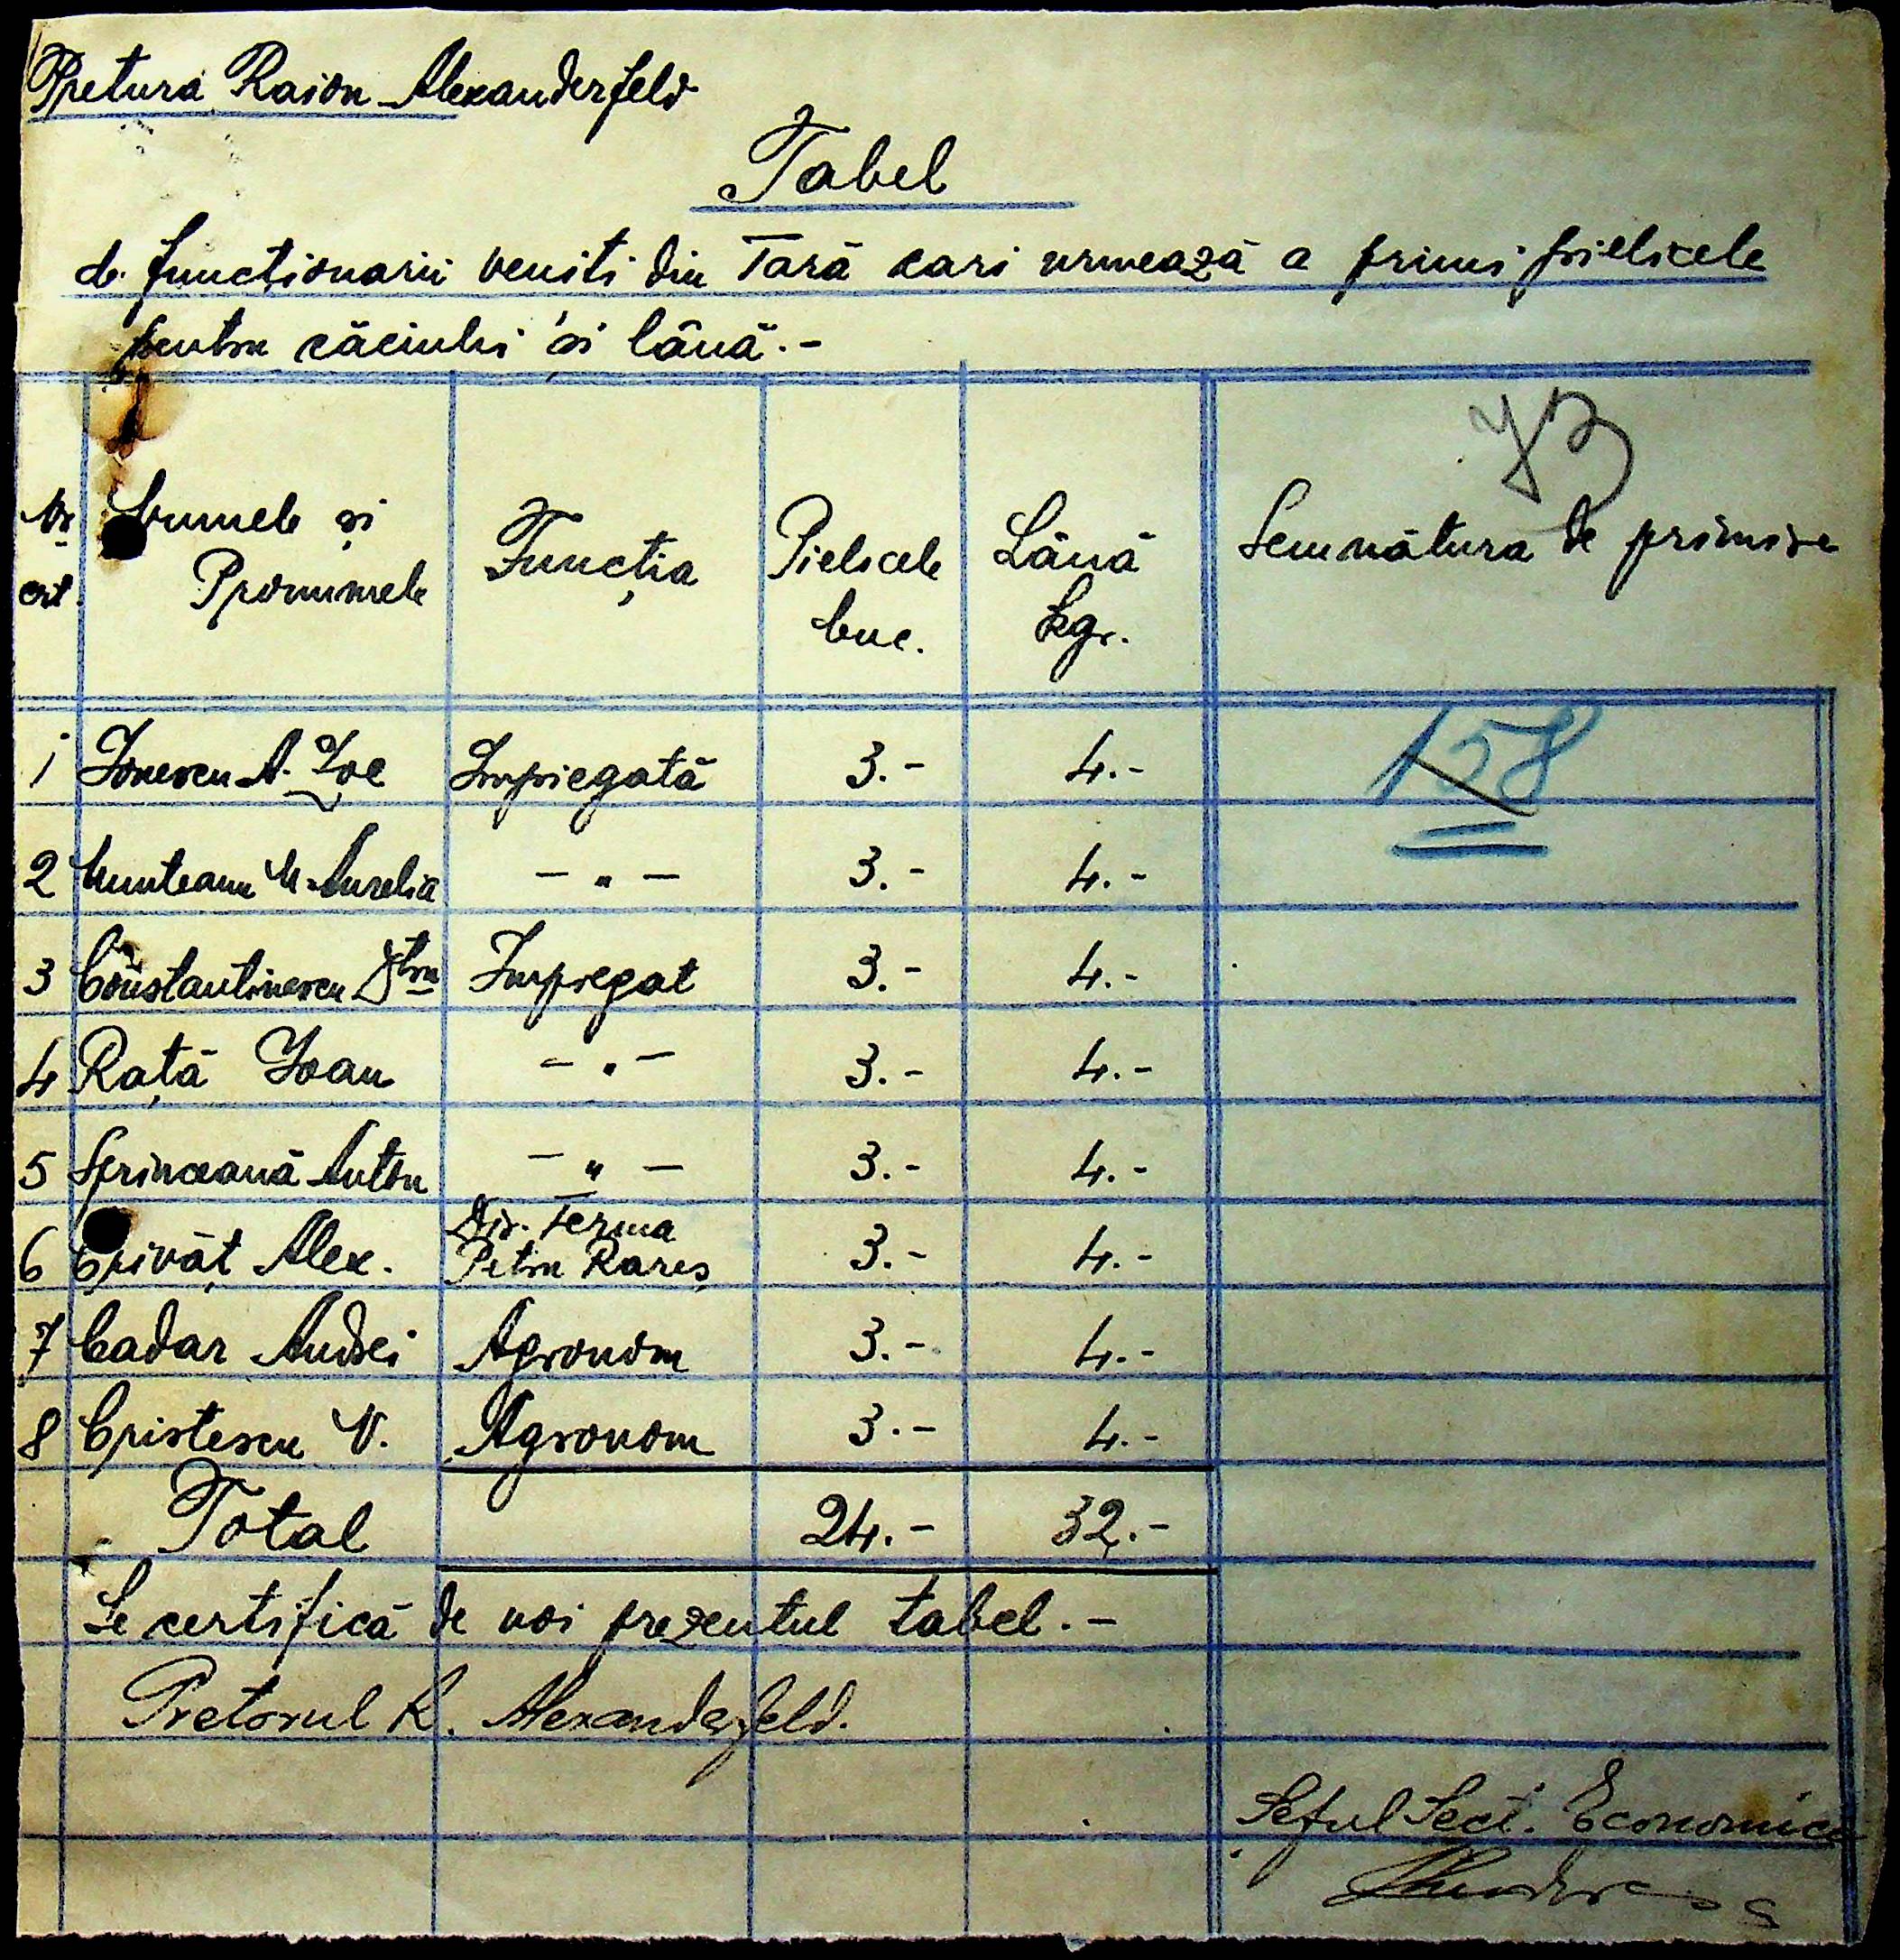 Pretura Raion Alexanderfeld
Tabel
de funcționarii veniti din Țară cari urmează a primi pielicele
pentru căciuli și lână.-
73
Nr crt. Numele și Pronumele Funcția Pielicele buc. Lână kgr. Semnătura de primire
158
1 Ionescu A. Zoe Impiegată 3.- 4.-
2 Munteanu M. Aurelia - " - 3.- 4.-
3 Constantinescu Dtru Impiegat 3.- 4.-
4 Rață Ioan - " - 3.- 4.-
5 Sprinceană Anton - " - 3.- 4.-
6 Crivăț Alex. Dir. Ferma Petru Rareș 3.- 4.-
7 Cadar Andrei Agronom 3.- 4.-
8 Cristescu V. Agronom 3.- 4.-
Total 24.- 32.-
Se certifică de noi prezentul tabel.-
Pretorul R. Alexanderfeld.
Șeful Secț. Economice